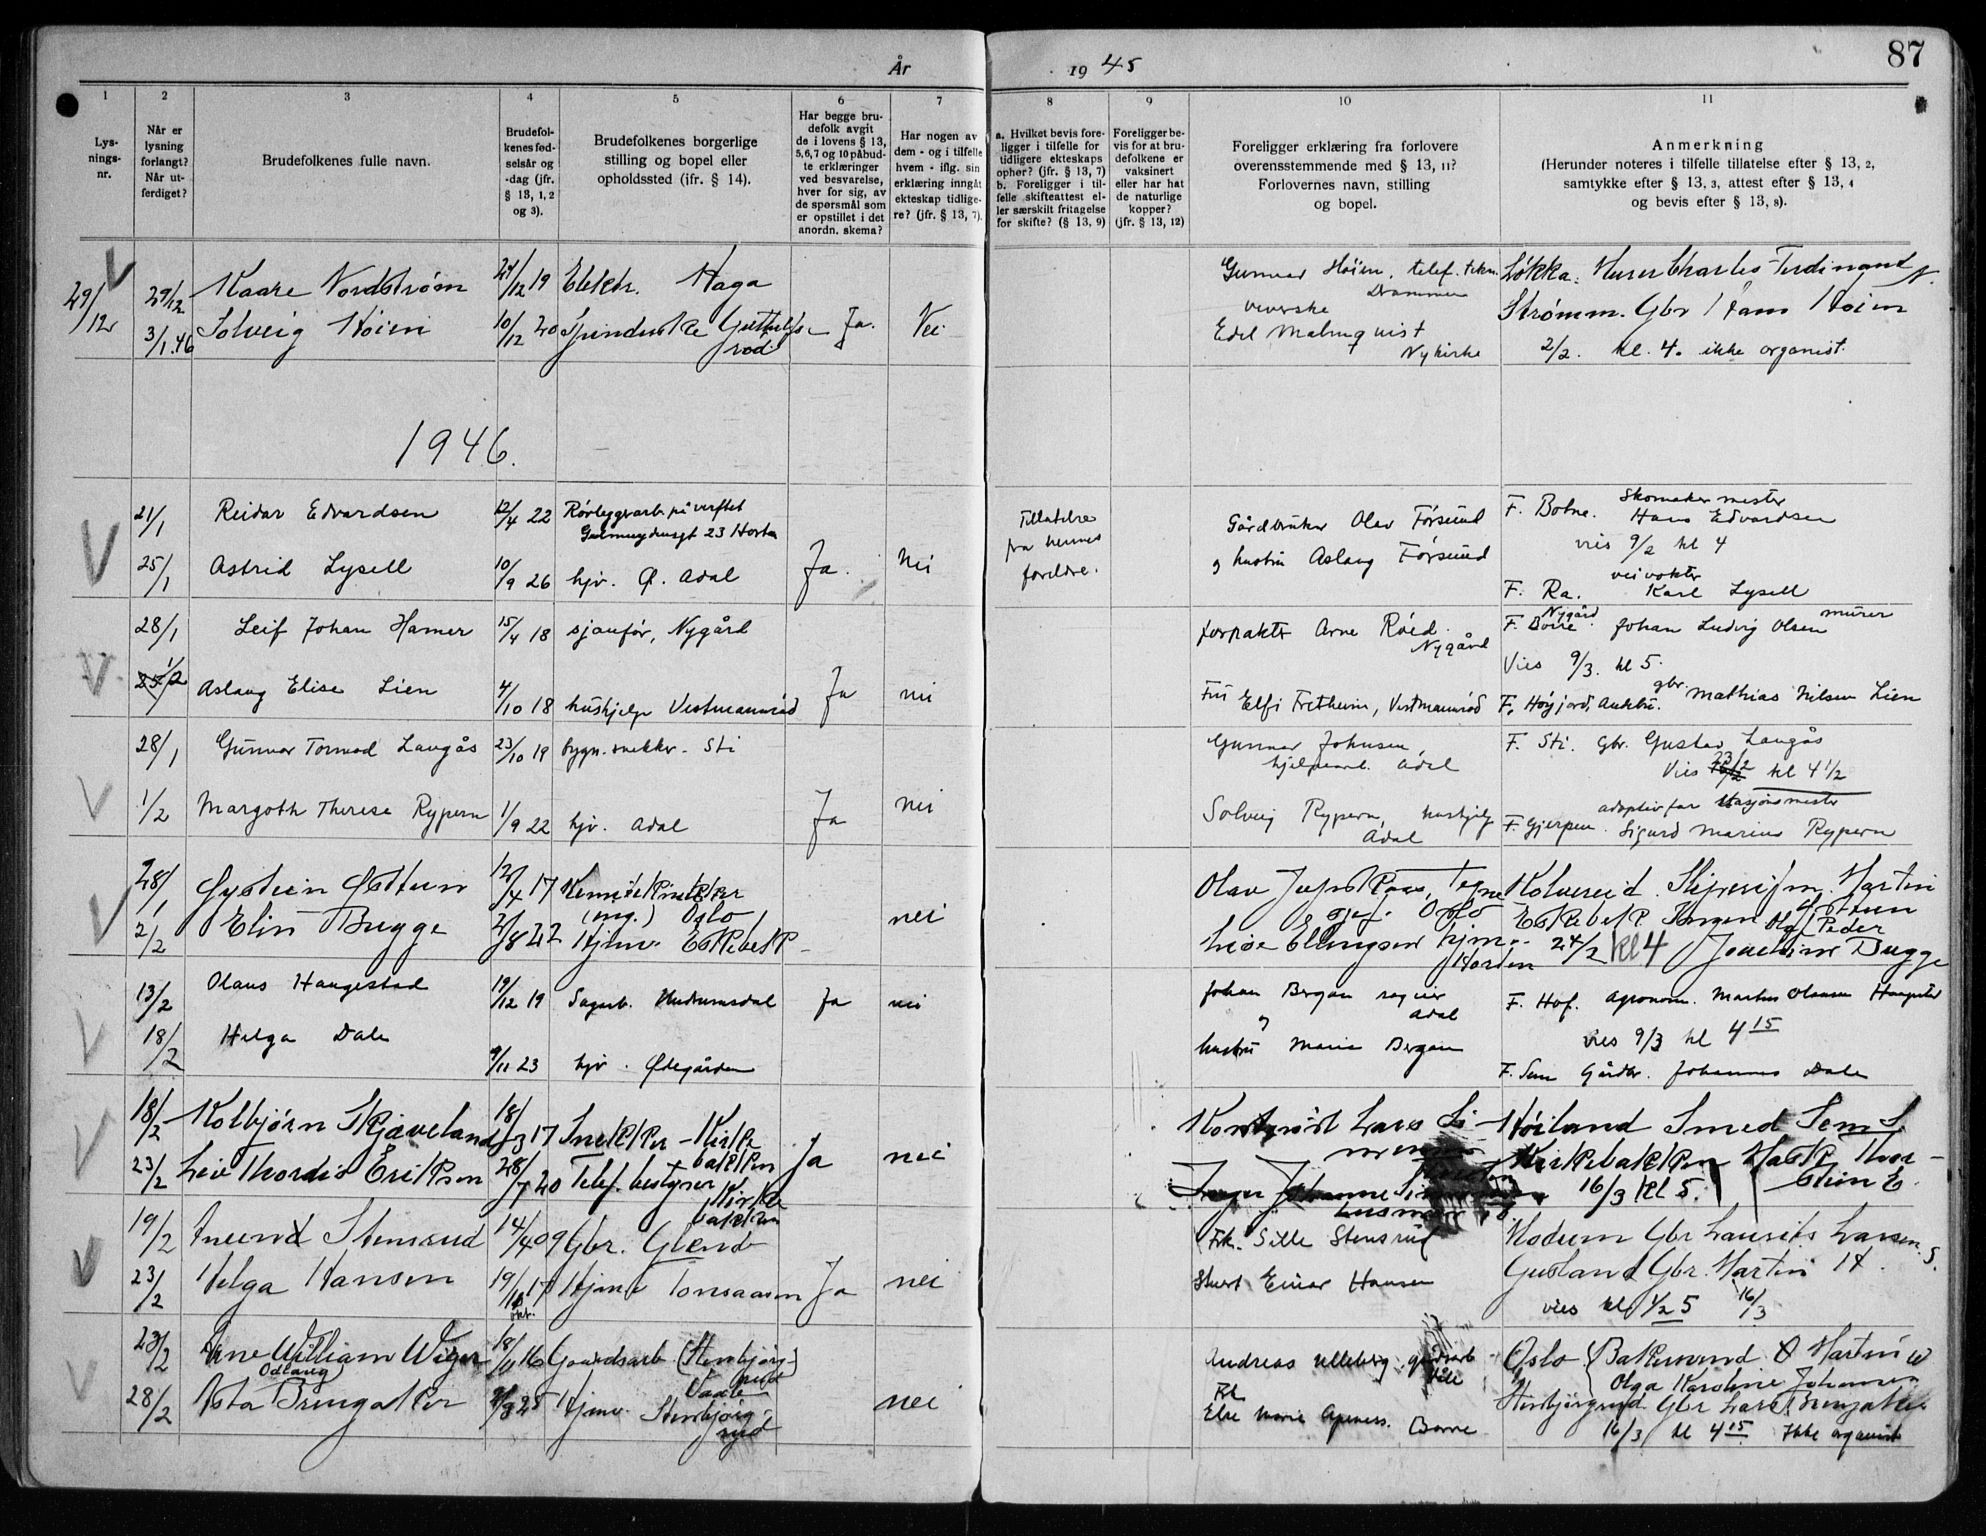 87
År
19 45
1
2
3
4
5
6
7
8
9
10
11
Lys-
nings-
nr.
Når er
lysning
forlangt?
Når ut-
ferdiget?
Brudefolkenes fulle navn.
Brudefol-
kenes fød-
selsår og
-dag (jfr.
§ 13, 1, 2
og 3).
Brudefolkenes borgerlige
stilling og bopel eller
opholdssted (jfr. § 14).
Har begge bru-
defolk avgit
de i lovens § 13,
5, 6, 7 og 10 påbud-
te erklæringer
ved besvarelse,
hver for sig, av
de spørsmål som
er opstillet i det
anordn. skema?
Har nogen av
dem - og i tilfelle
hvem - iflg. sin
erklæring inngåt
ekteskap tidlige-
re? (jfr. § 13, 7).
a. Hvilket bevis fore-
ligger i tilfelle for
tidligere ekteskaps
ophør? (jfr. § 13, 7)
b. Foreligger i til-
felle skifteattest el-
ler særskilt fritagelse
for skifte? (§ 13, 9)
Foreligger be-
vis for at bru-
defolkene er
vaksinert
eller har hat
de naturlige
kopper?
(jfr. § 13, 12)
Foreligger erklæring fra forlovere
overensstemmende med § 13, 11?
Forlovernes navn, stilling
og bopel.
Anmerkning
(Herunder noteres i tilfelle tillatelse efter § 13, 2,
samtykke efter § 13, 3, attest efter § 13, 4
og bevis efter § 13, 8).
29/12 29/12 Kaare Nordstrøm 24/12 19 Elektr. Haga
Gunnar Høien, telef. tekn. Drammen
Løkka. Murer Charles Ferdinand N.
3/1.46 Solveig Høien 10/12 20 Spinderske Ja. Nei
veverske
Edel Malmqvist
Nykirke
Strømm. Gbr Hans Høien
2/2. kl. 4. ikke organist.
1946.
21/1 Reidar Edvardsen 12/4 22 Rørleggerarb. på verftet
23 Horten
Tillatelse
fra hennes
foreldre.
Gårdbruker Olav Førsund
F. Botne. Skomakermester
Hans Edvardsen
vies 9/2 kl 4
25/1 Astrid Lysell 10/9 26 hjv. Ø. Adal Ja. Nei
og hustru Aslaug Førsund
F. Ra. veivokter
Karl Lysell
28/1 Leif Johan Hamer 15/4 18 sjåufør, Nygård
forpakter Arne Røed.
Nygård
F. Borre Nygård. Johan Ludvig Olsen murer
Vies 9/3. kl 5.
1/2 Aslaug Elise Lien 4/10 18 hushjelp Vestmannrød Ja nei
Fru Elfi Fretheim, Vestmannrød
F. Høyjord, gbr Mathias Nilsen Lien
28/1 Gunnar Tormod Langås 23/10 19 bygn.snekker. Sti
Gunnar Johnsen,
hjelpearb. Adal
F. Sti. Gbr. Gustav Langås
Vies 23/2 kl 4 1/2
1/2 Margoth Therese Rypern 1/9 22 hjv. Adal Ja nei
Solveig Rypern, hushjelp
Adal
adoptivfar stasjonsmester
F. Gjerpen. Sigurd Marius Rypern
28/1 Øystein Østtun 12/4 17
(ing.) Oslo
Oslo
Kolvereid. Martin
2/2 Elin Bugge 2/8 22 Hjemv. Eskebekk nei
Lise Ellingsen hjm.
Horten
Eskebekk. Peder
24/2 kl 4 Joachim Bugge
13/2 Olaus Haugestad 19/12 19 Sagarb. Undrumsdal Ja nei
Johan Bergan
Adal
og
F. Hof. Agronom. Markus Olausen Haugestad
vies 9/3 kl 4 15
18/2 Helga Dale 9/11 23 hjv. Ødegården
hustru Marie Bergan
F. Sem Gårdbr. Johannes Dale
18/2 Kolbjørn Skjæveland 18/3 17 Snekker - Kirke
bakken
Lars
Høiland Smed Sem S.
23/2 Liv Thordis Eriksen 28/7 20 Telef. bestyrer Ja nei
Kirke
bakken
Kirkebakken
16/3 kl 5.
19/2 Stensrud 14/4 09 Gbr.
Frk. Sille Stensrud
Modum Gbr Laurits Larsen S.
23/2 Helga Hansen 19/10 17 Hjemv Tonsaasen Ja nei
okt.
Einar Hansen
Gusland Gbr. Martin H.
vies kl 1/2 5 16/3
23/2 Arne William Wiger 18/11 16 Gaardsarb (Stenbjørg-
rud
Andreas Ulleberg, gårdsarb
Oslo Martin W
Olga Karoline Johansen
28/2 Asta Odlaug Bringaker 25 Hjemv. Stenbjørg-
rud
nei
Else Marie
Borre
Stenbjørgrud Gbr Lars Bringaker
16/3 kl 4 15 Ikke organist